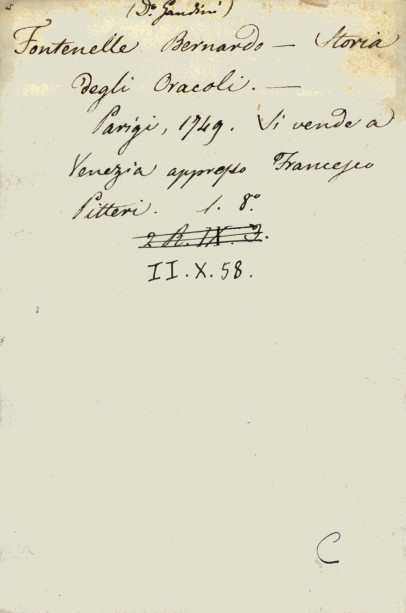 (D.º Gandini)
Fontenelle Bernardo — Storia
degli Oracoli. —
Parigi, 1749. Si vende a
Venezia appresso Francesco
Pitteri. 1. 8.º
2 R. IX. J.
II. X. 58.
C